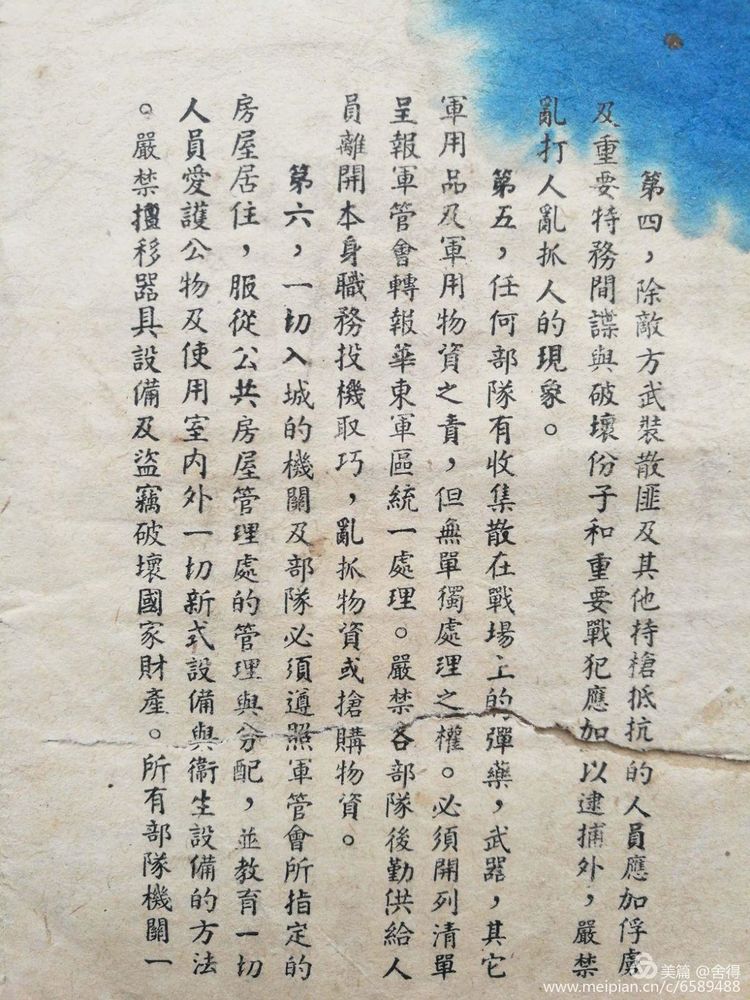 第四，除敵方武裝散匪及其他持槍抵抗的人員應加俘處
及重要特務間諜與破壞份子和重要戰犯應加以逮捕外，嚴禁
亂打人亂抓人的現象。
第五，任何部隊有收集散在戰場上的彈藥，武器，其它
軍用品及軍用物資之責，但無單獨處理之權。必須開列清單
呈報軍管會轉報華東軍區統一處理。嚴禁各部隊後勤供給人
員離開本身職務投機取巧，亂抓物資或搶購物資。
第六，一切入城的機關及部隊必須遵照軍管會所指定的
房屋居住，服從公共房屋管理處的管理與分配，並教育一切
人員愛護公物及使用室内外一切新式設備與衛生設備的方法
。嚴禁擅移器具設備及盜竊破壞國家財產。所有部隊機關一
美篇 @舍得
www.meipian.cn/c/6589488